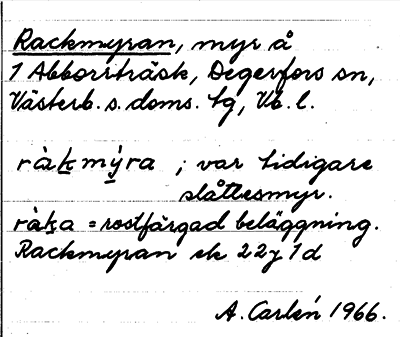 Rackmyran, myr å
1 Abborrträsk, Degerfors sn,
Västerb. s. doms. tg, Vb. l.
ràḵmýra ; var tidigare
slåttesmyr.
ràḵa = rostfärgad beläggning.
Rackmyran ek 22y 1d
A. Carlén 1966.